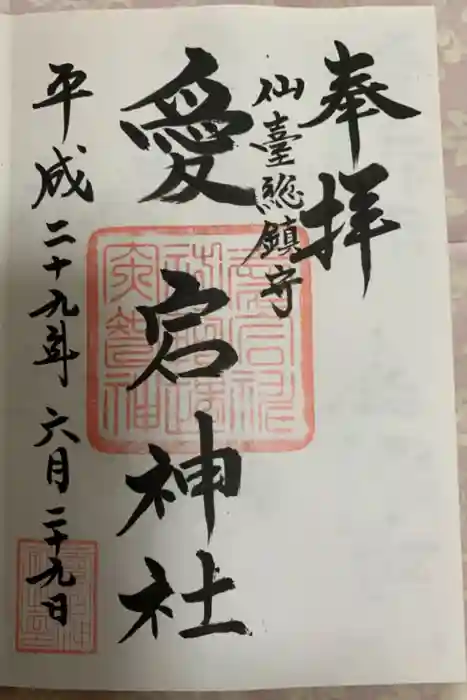 奉拝
仙臺総鎮守
愛宕神社
平成二十九年六月二十九日